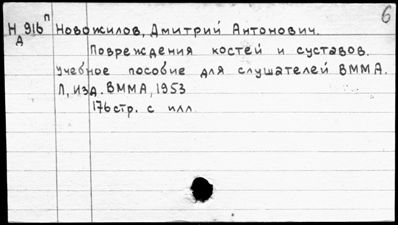 6
Н 916 п Новожилов, Дмитрий Антонович.
Д
Повреждения костей и суставов.
Учебное пособие для слушателей ВММА.
Л, Изд. ВММА, 1953
176 стр. с илл.